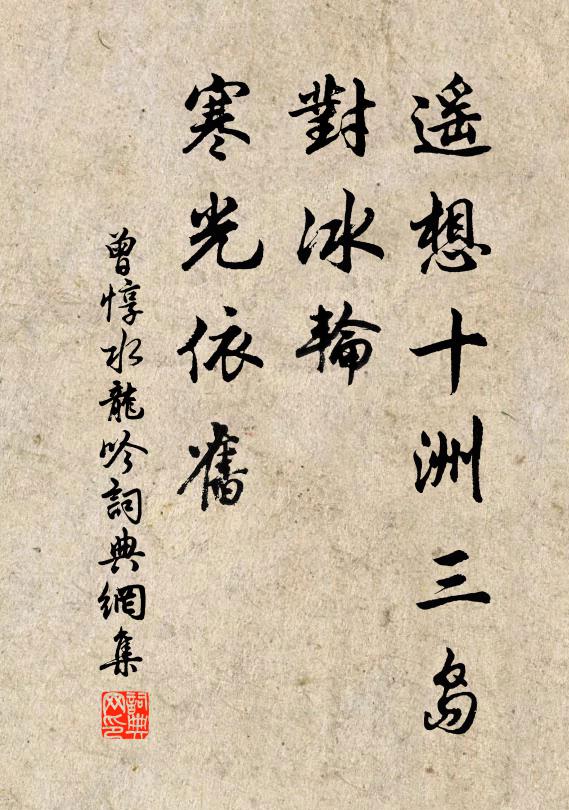 遥想十洲三島
對冰輪
寒光依舊
曾惇水龍吟詞典網集
詞典網印